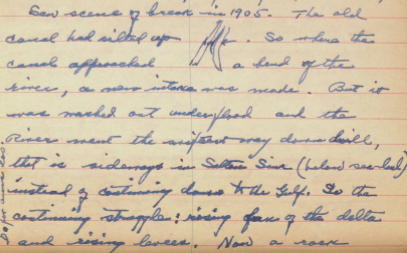 Saw scene of break in 1905. The old
canal had silted up. So where the
canal approached a bend of the
river, a new intake was made. But it
was washed out under flood and the
River went the easiest way down hill,
that is sideways in Salton Sink (below sea-level)
instead of continuing down to the Gulf. So the
continuing struggle: rising fan of the delta
and rising levees. Now a rock